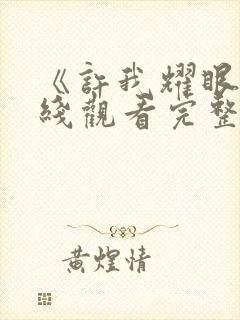 《許我耀眼
綫觀看完整
黄煌情